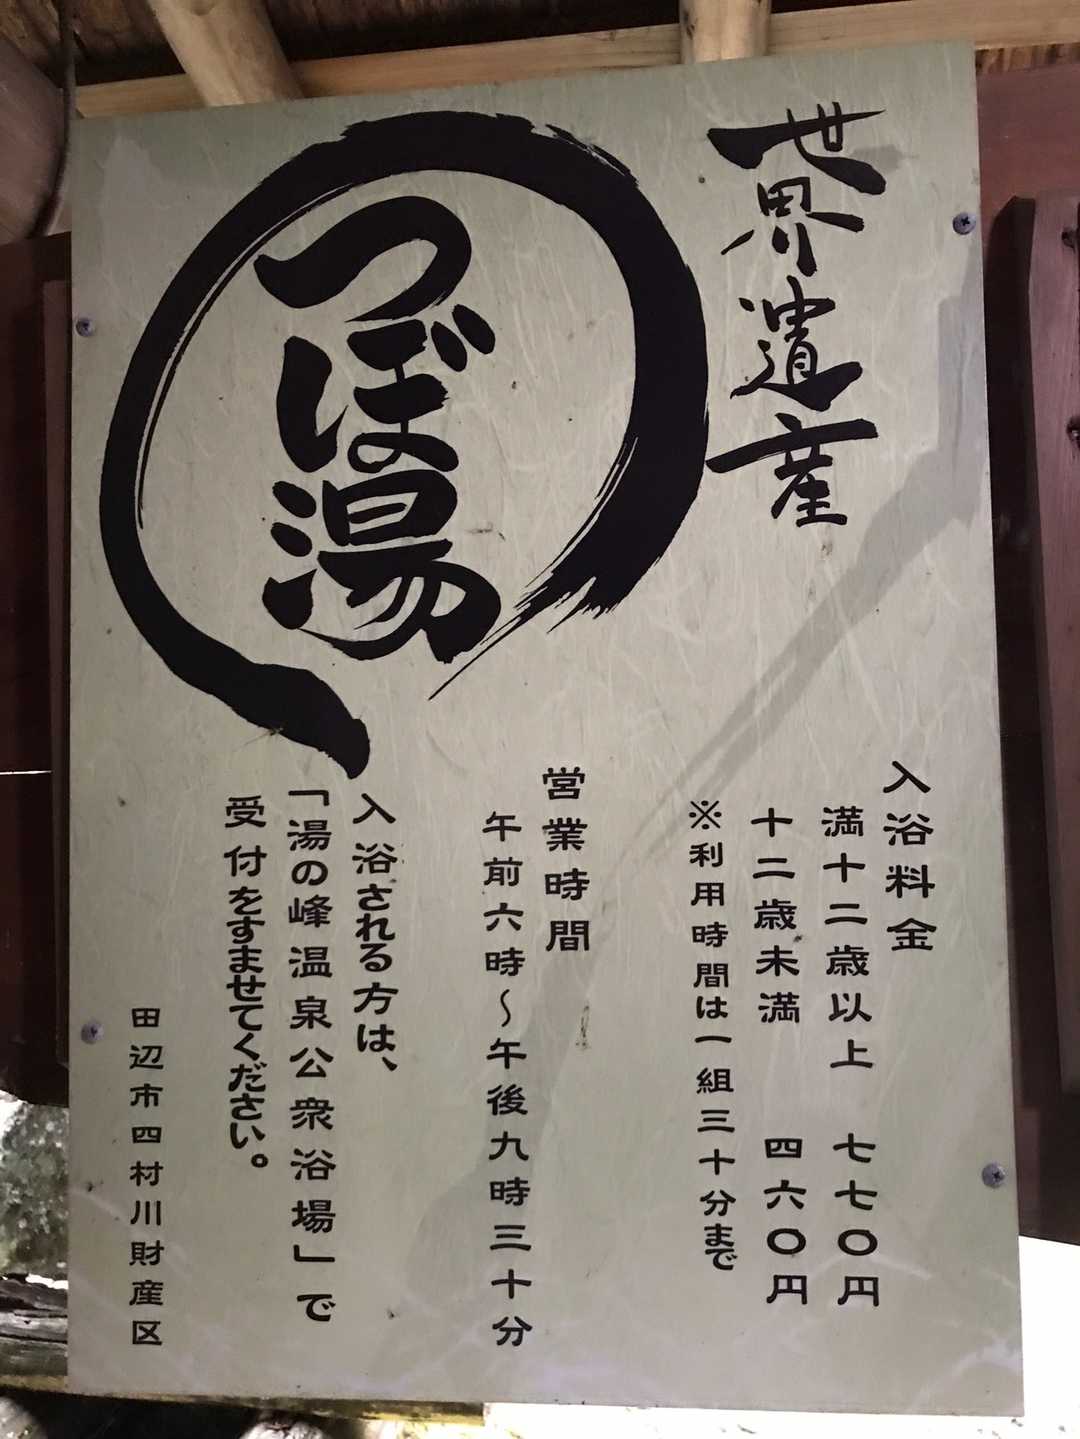 世界遺産
つぼ湯
入浴料金
満十二歳以上 七七〇円
十二歳未満 四六〇円
※利用時間は一組三十分まで
営業時間
午前六時～午後九時三十分
入浴される方は、
「湯の峰温泉公衆浴場」で
受付をすませてください。
田辺市四村川財産区